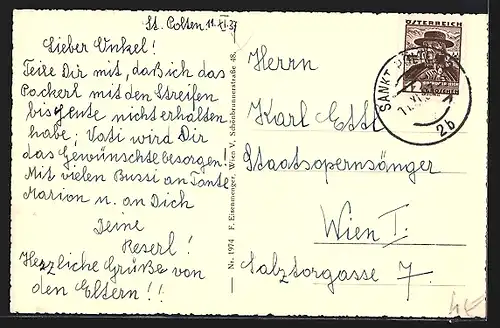 St. Pölten 11.XI.37
Lieber Onkel!
Teile Dir mit, daß ich das
Packerl mit den Streifen
bis heute nicht erhalten
habe; Vati wird Dir
das Gewünschte besorgen!
Mit vielen Bussi an Tante
Marion u. an Dich
Deine
Reserl!
Herzliche Grüße von
den Eltern!!
Nr. 1974 F. Eisenmenger, Wien V, Schönbrunnerstraße 48.
ÖSTERREICH
SANKT PÖLTEN
2b
Herrn
Karl Ettl
Staatsopernsänger
Wien I.
Salztorgasse 7.